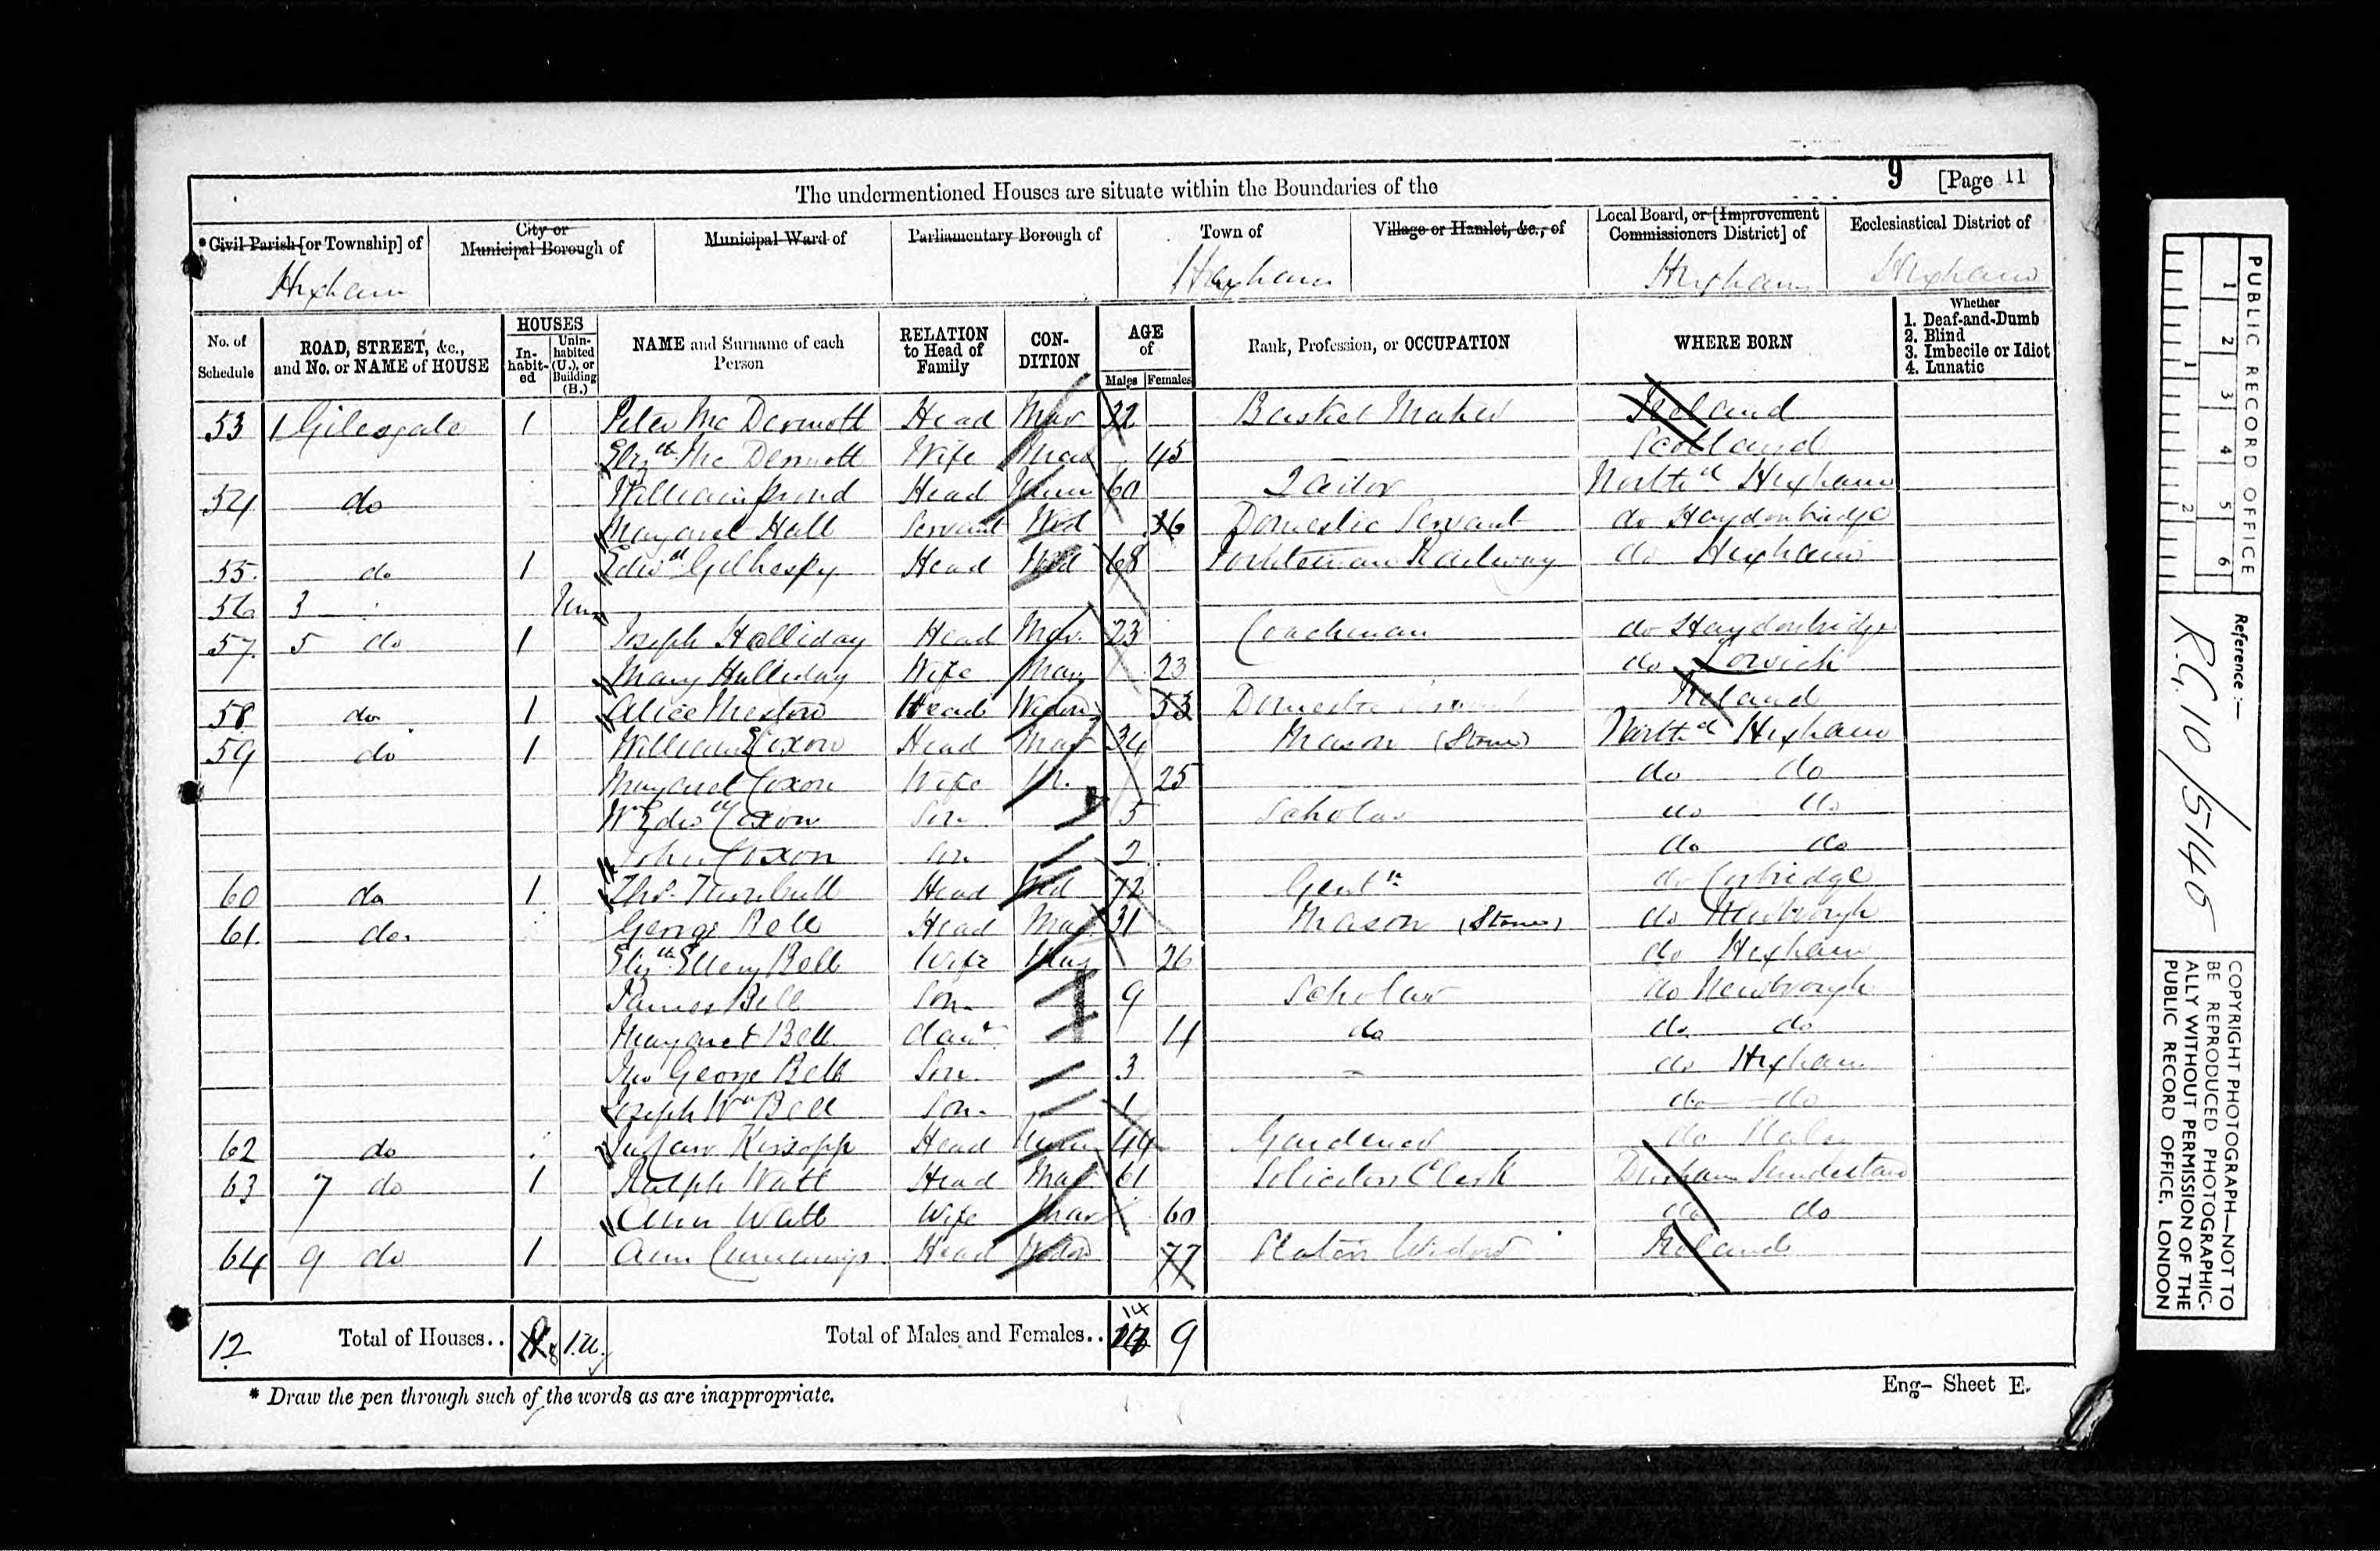 The undermentioned Houses are situate within the Boundaries of the
9 [Page 11
*Civil Parish [or Township] of
City or Municipal Borough of
Municipal Ward of
Parliamentary Borough of
Town of
Village or Hamlet, &c., of
Local Board, or [Improvement Commissioners District] of
Ecclesiastical District of
Hexham Hexham Hexham Hexham
No. of Schedule
ROAD, STREET, &c., and No. or NAME of HOUSE
HOUSES
In-habit-ed
Unin-habited (U.), or Building (B.)
NAME and Surname of each Person
RELATION to Head of Family
CON-DITION
AGE of
Males Females
Rank, Profession, or OCCUPATION
WHERE BORN
Whether
1. Deaf-and-Dumb
2. Blind
3. Imbecile or Idiot
4. Lunatic
53 1 Gilesgate 1 Peter Mc Dermott Head Mar 32 Basket Maker Ireland
Elizth Mc Dermott Wife Mar 45 Scotland
54 do William Proud Head Unm 60 Tailor Northd Hexham
Margaret Hall Servant Wid 36 Domestic Servant do Haydonbridge
55. do 1 Edwd Gilhespy Head Wid 68 Railway do Hexham
56 3 Un
57. 5 do 1 Joseph Halliday Head Mar. 23 Coachman do Haydonbridge
Mary Halliday Wife Mar 23 do
58 do 1 Alice Head Widow 53 Domestic Ireland
59 do 1 William Coxon Head Mar 34 Mason (Stone) Northd Hexham
Margaret Coxon Wife M. 25 do do
Wm Edwd Coxon Son 5 Scholar do do
John Coxon Son 2 do do
60 do 1 Thos. Turnbull Head Wid 72 Gentn do Corbridge
61. do. George Bell Head Mar 31 Mason (Stone) do Newbrough
Elizth Ellery Bell Wife Mar 26 do Hexham
James Bell Son 9 Scholar do Newbrough
Margaret Bell daur 4 do do do
Jno George Bell Son. 3 do Hexham
Joseph Wm Bell Son. 1 do do
62 do Kirsopp Head Unm 44 Gardener do
63 7 do 1 Ralph Watt Head Mar. 61 Solicitors Clerk Durham Sunderland
Ann Watt Wife Mar 60 do do
64 9 do 1 Ann Cummings Head Widow 77 Widow Ireland
12 Total of Houses.. 8 1.U. Total of Males and Females.. 14 9
* Draw the pen through such of the words as are inappropriate.
Eng- Sheet E.
PUBLIC RECORD OFFICE
1 2 3 4 5 6
1 2
Reference:-
R.G. 10/5145
COPYRIGHT PHOTOGRAPH—NOT TO
BE REPRODUCED PHOTOGRAPHIC-
ALLY WITHOUT PERMISSION OF THE
PUBLIC RECORD OFFICE, LONDON